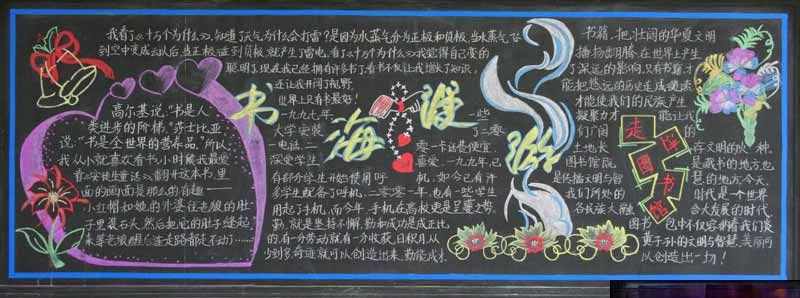 我看了《十万个为什么》,知道了天气为什么会打雷?是因为水蒸气分为正极和负极,当水蒸气飞
到空中变成云以后,当正极碰到负极,就产生了雷电,看了《十万个为什么》我觉得自己变的
聪明了,现在我已经拥有许多书了,看书不仅让我增长了知识,
还让我开阔了视野,
世界上只有书最好!
书海漫游
高尔基说:"书是人
类进步的阶梯。"莎士比亚
说:"书是全世界的营养品。"所以,
我从小就喜欢看书,小时候我最爱
看《安徒生童话》,翻开这本书,里
面的画面是那么的有趣——
小红帽和她的外婆往老狼的肚
子里装石头,然后把它的肚子缝起
来,等老狼醒后连走路都走不动了……
一九九七年,
大学安装
一电话,二
深受学生
有部分学生开始使用呼
多学生配备了呼机,二零零一年,也有一些学生
用起了手机,而今年,手机在高校更是呈蔓之势。
勤,就是坚持不懈,勤和成功是成正比
的,有一份劳动就有一份收获,日积月从
少到多,奇迹就可以创造出来,勤能成才
一些
了二零
零一卡话费便宜
喜爱,一九九九年,已
机,如今已有许
书籍,把壮阔的华夏文明
播扬翻腾,在世界上产生
了深远的影响,只有书籍,才
能把悠远的历史连成缕缕
才能使我们的民族产生
凝聚力才
能让我
们广阔
的
土地长
存文明的火种。
走阵图书馆
图书馆院,
是藏书的地方,也
是传播文明与智
慧的地方,今天,
我们所处的
时代是一个世界
各民族大融
合大发展的时代,
图书
包中不仅容纳着我们炎
黄子孙的文明与智慧,美丽而
以创造出一切!